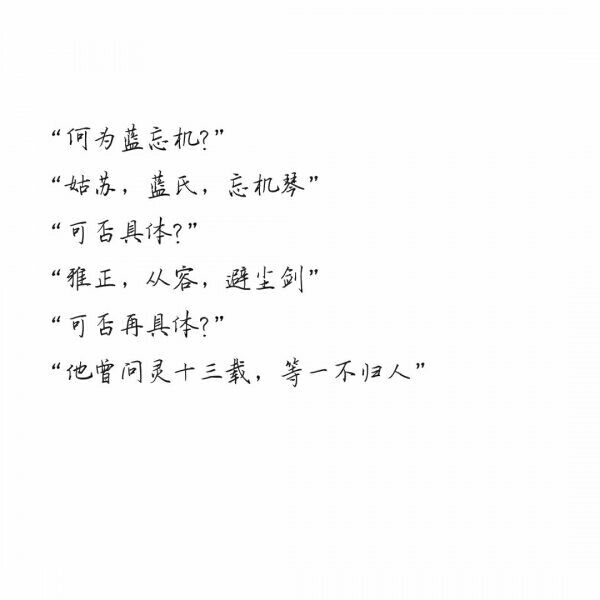 “何为蓝忘机?”
“姑苏，蓝氏，忘机琴”
“可否具体?”
“雅正，从容，避尘剑”
“可否再具体?”
“他曾问灵十三载，等一不归人”